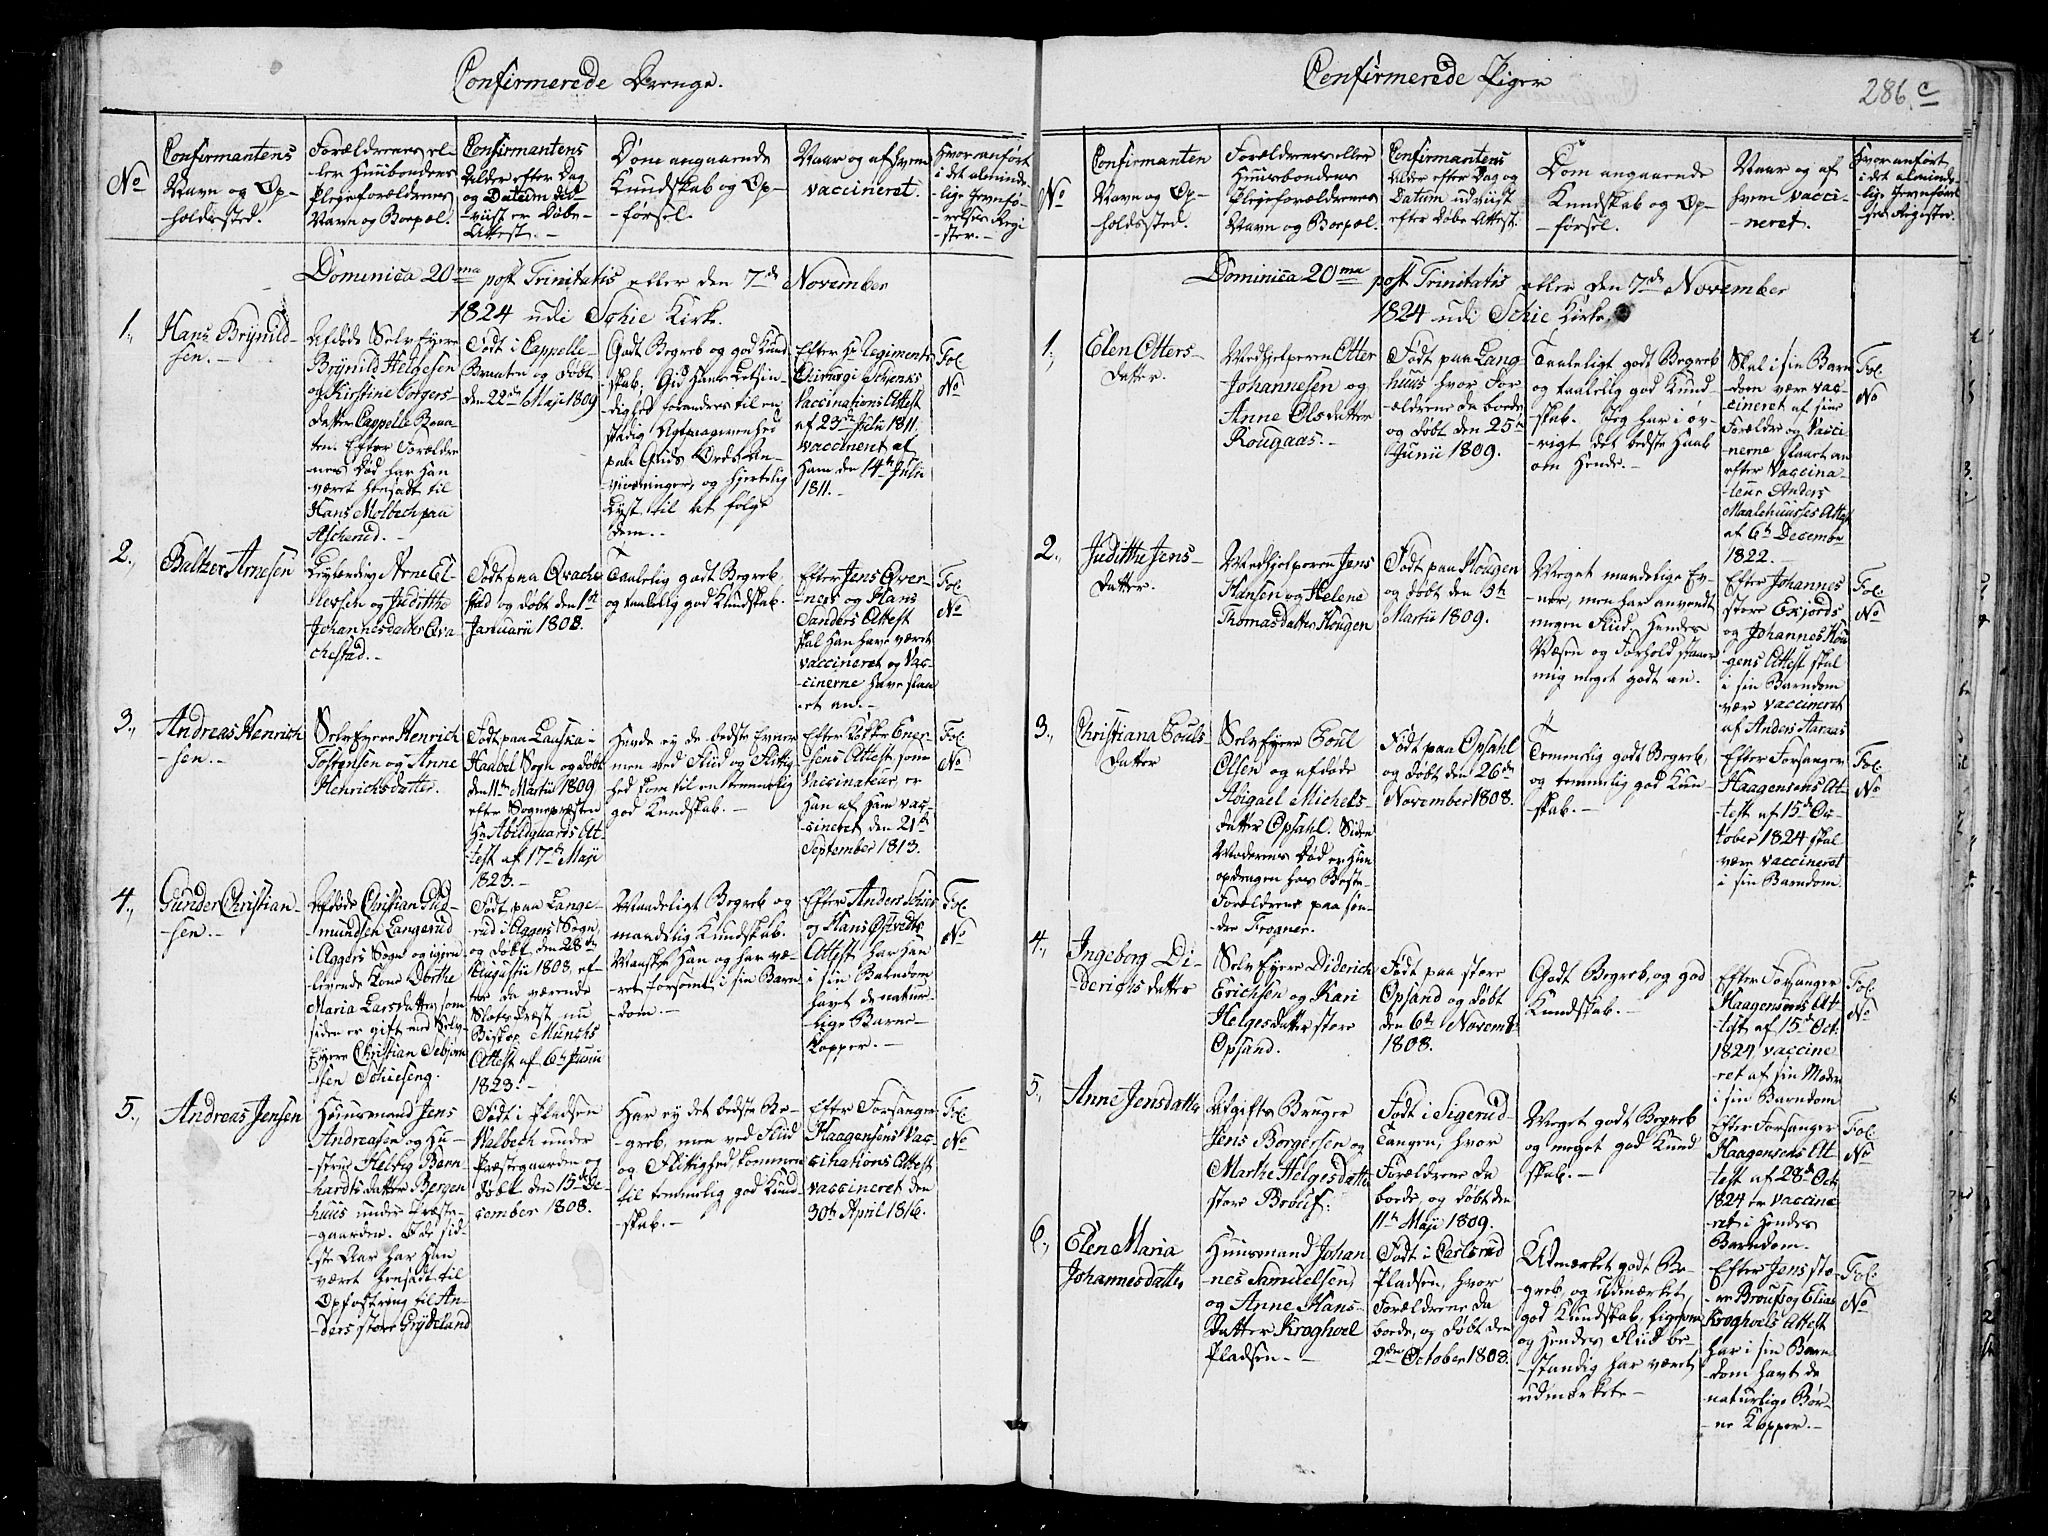 Confirmerede Drenge.
No
Confirmantens
Navn og Op-
holdssted.
Forældrenes el-
ler Huusbondens
Plejeforældrenes
Navn og Boepæl.
Confirmantens
Alder efter Dag
og Datum ud-
viist er Døbe-
Attest.
Dom angaaende
Kundskab og Op-
-førsel.
Naar og af hvem
vaccineret.
Hvor anført
i det alminde-
lige Jevnfø-
relses Regi-
ster.
Domenica 20ma post Trinitatis eller den 7de November
1824 udi Schie Kirke.
1.,
Hans Brynild-
sen.
Afdøde Selvejere
Brynild Helgesen
og Kirstine Torgers-
datter Cappelle Braa-
ten. Efter Forældre-
nes Død har han
været hensadt til
Hans Molbech paa
Ascherud.
Født i Cappelle-
Braaten og døbt
den 22de Maji 1809
Godt Begreb og god Kund-
skab. Gid hans Letsin-
dighed forandres til en
stadig Agtpaagivenhed
paa Guds Ords An-
viisninger, og hjertelig
Lyst til at følge
dem.
Efter Hr Regiments
Chirurgi Schenks
Vaccinations Attest
af 23de Julii 1811.
vaccineret af
ham den 14de Julii
1811.
Fol.
No
2.,
Baltzer Arnesen
Leylænding Arne El-
levsen og Judithe
Johannesdatter Qva-
chestad.
Født paa Qvache-
stad og døbt den 1ste
Januarii 1808.
Taalelig godt Begreb
og taalelig god Kundskab.
Efter Jens Qver-
ners og Hans
Sanders Attest
skal han have været
vaccineret og Vac-
cinerne have slaa-
et an.
Fol.
No
3.,
Andreas Henrich-
sen.
Selvejere Henrich
Torgersen og Anne
Henrichsdatter.
Født paa Lauska i
Haabel Sogn og døbt
den 11te Martii 1809
efter Sognepræsten
Hr Abildgaards At-
test af 17de Maji
1823.
Havde ej de bedste Evner
men ved Fliid og Flittig-
hed kom til en temmelig
god Kundskab.
Efter Kokker Ener-
sens Attest, som
Vaccinateur, er
han af ham vac-
cineret den 21de
September 1813.
Fol.
No
4.,
Gunder Christian-
sen.
Afdøde Christian Gud-
mundsen Langerud
i Aggers Sogn og igjen-
levende Kone Dorthe
Maria Larsdatter, som
siden er gift med Selv-
Eyere Christian Sebjørn-
sen Schieseng.
Født paa Lange-
rud i Aggers Sogn,
og døbt den 28de
Augustii 1808, ef-
ter da værende
Slots Præst, nu
Biskop Munchs
Attest af 6te Junii
1823.
Maadeligt Begreb og
maadelig Kundskab.
Vanskje han og har væ-
ret forsømt i sin Barn-
dom.
Efter Anders Schies
og Hans Østvedts
Attest har han
i sin Barndom
havt de natur-
lige Børne-
Kopper.
Fol.
No
5.,
Andreas Jensen
Huusmand Jens
Andreasen og Hu-
strue Helvig Bern-
hardtsdatter Bergen
huus under Præste-
gaarden. I de sid-
ste Aar har han
været hensadt til
Opfostring til An-
ders store Grydeland
Født i Pladsen
Walbech under
Præstegaarden og
døbt den 15de De-
cember 1808.
Har ej det bedste Be-
greb, men ved Fliid
og Flittighed kommen
til temmelig god Kund-
skab.
Efter Forsanger
Haagensens Vac-
cinations Attest
vaccineret den
30te April 1816.
Fol.
No
Confirmerede Piger
286.c
No
Confirmanten
Navn og Op-
holdssted.
Forældrenes eller
Huusbondens
Plejeforældrenes
Navn og Boepæl.
Confirmantens
Alder efter Dag og
Datum udviist
efter Døbe Attest.
Dom angaaende
Kundskab og Op-
førsel.
Naar og af
hvem vacci-
neret.
Hvor anført
i det alminde-
lige Jevnførel-
ses Register.
Dominica 20ma post Trinitatis eller den 7de November
1824 udi Schie Kirke.
1.,
Elen Otters-
datter.
Medhjelperen Otter
Johannesen og
Anne Olsdatter
Rougaas.
Født paa Lang-
huus hvor For-
ældrene da boede
og døbt den 25de
Junii 1809.
Taaleligt godt Begreb
og taalelig god Kund-
skab. Jeg har i øv-
rigt det bedste Haab
om hende.
Skal i sin Barn-
dom være vac-
cineret af sine
Forældre og Vacci-
nerne slaaet an
efter Vaccina-
teur Anders
Maalehuusses Attest
af 6te December
1822.
Fol.
No
2.,
Judithe Jens-
datter.
Medhjelperen Jens
Hansen og Helene
Thomasdatter Hougen
Født paa Hougen
og døbt den 5te
Martii 1809.
Meget maadelige Ev-
ner, men har anvendt
megen Fliid, hendes
Væsen og Forhold staaer
mig meget godt an.
Efter Johannes
store Exjords
og Johannes Hou-
gens Attest skal
i sin Barndom
være vaccineret
af Anders Aaraas
Fol.
No
3.,
Christiana Pouls-
datter
Selvejere Poul
Olsen og afdøde
Abigael Michels-
datter Opsahl. Siden
Moderens Død er hun
opdragen hos Beste-
Forældrene paa søn-
dre Frogner.
Født paa Opsahl
og døbt den 26de
November 1808.
Temmelig godt Begreb,
og temmelig god Kun-
skab.
Efter Forsanger
Haagensens At-
test af 15de Oc-
tober 1824 skal
være vaccineret
i sin Barndom.
Fol.
No
4.,
Ingeborg Di-
derichsdatter
Selvejere Diderich
Erichsen og Kari
Helgesdatter store
Opsand.
Født paa store
Opsand og døbt
den 6te Novemb.
1808.
Godt Begreb, og god
Kundskab.
Efter Forsanger
Haagensens At-
test af 15de Oct.
1824 vaccine-
ret af sin Moder
i sin Barndom
Fol.
No
5.,
Anne Jensdatter
Afgifts Bruger
Jens Borgersen og
Marthe Helgesdatter
store Brouf.
Født i Sigerud-
Tangen, hvor
Forældrene da
boede, og døbt den
11te Maji 1809.
Meget godt Begreb
og meget god Kund-
skab.
Efter Forsanger
Haagensens At-
test af 28de Oct.
1824 er vaccine-
ret i hendes
Barndom.
Fol.
No
6.,
Elen Maria
Johannesdatter
Huusmand Johan-
nes Samuelsen,
og Anne Hans-
datter Kroghoel
Pladsen.
Født i Carlsrud
Pladsen, hvor
Forældrene da
boede, og døbt den
2den October 1808.
Udmærket godt Be-
greb, og udmærket
god Kundskab, ligesom
og hendes Fliid be-
standig har været
udmærket.
Efter Jens sto-
re Broufs og Elias
Kroghoels Attest
har i sin Barn-
dom havt de
naturlige Bør-
ne Kopper.
Fol.
No